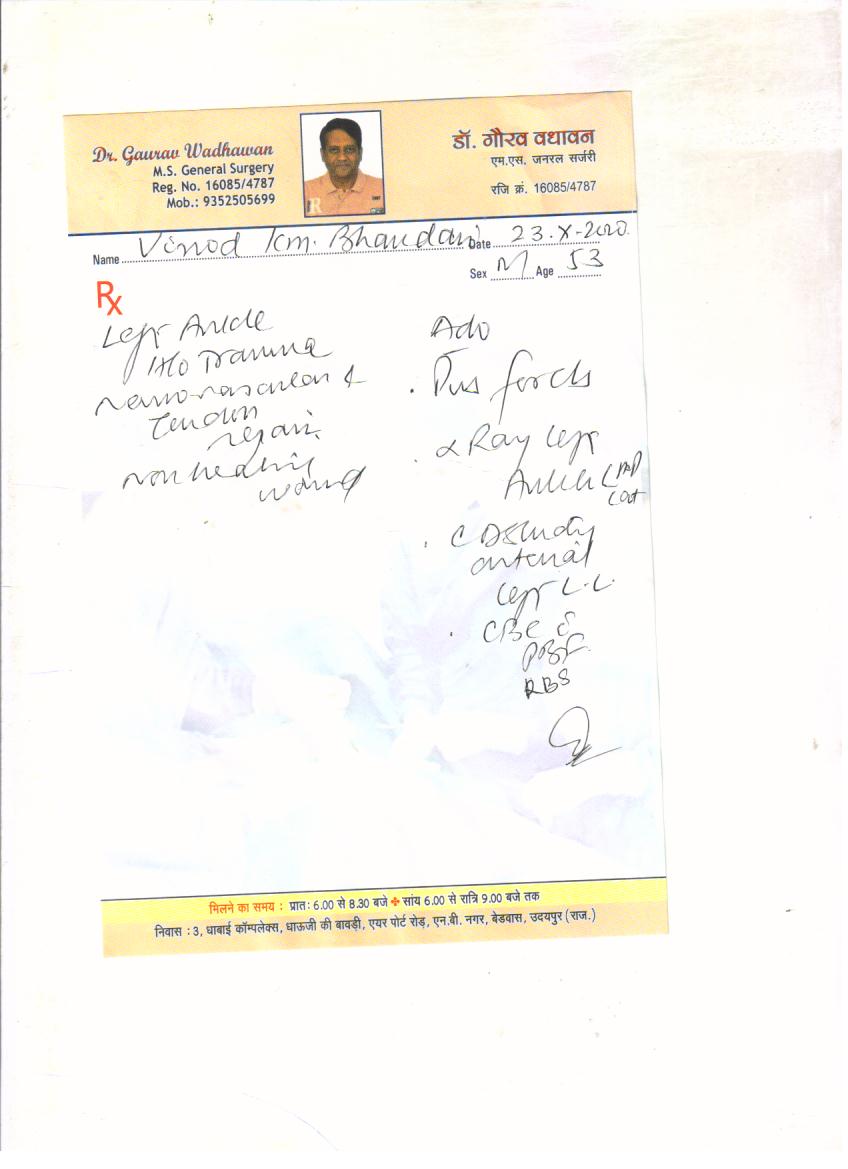 Dr. Gaurav Wadhawan
M.S. General Surgery
Reg. No. 16085/4787
Mob.: 9352505699
डॉ. गौरव वधावन
एम.एस. जनरल सर्जरी
रजि क्रं. 16085/4787
Name Vinod Km. Bhandari Date 23.X-2020
Sex M Age 53
Rx
Left Ankle
H/o Trauma
neurovascular &
tendon
repair.
non healing
wound
Adv
. Pus for c/s
. X Ray Left
Ankle AP
Lat
. C D Study
arterial
Left L.L.
. CBC c̄
PBF
RBS
मिलने का समय : प्रातः 6.00 से 8.30 बजे ✤ सांय 6.00 से रात्रि 9.00 बजे तक
निवास : 3, धाबाई कॉम्पलेक्स, धाऊजी की बावड़ी, एयर पोर्ट रोड़, एन.बी. नगर, बेडवास, उदयपुर (राज.)